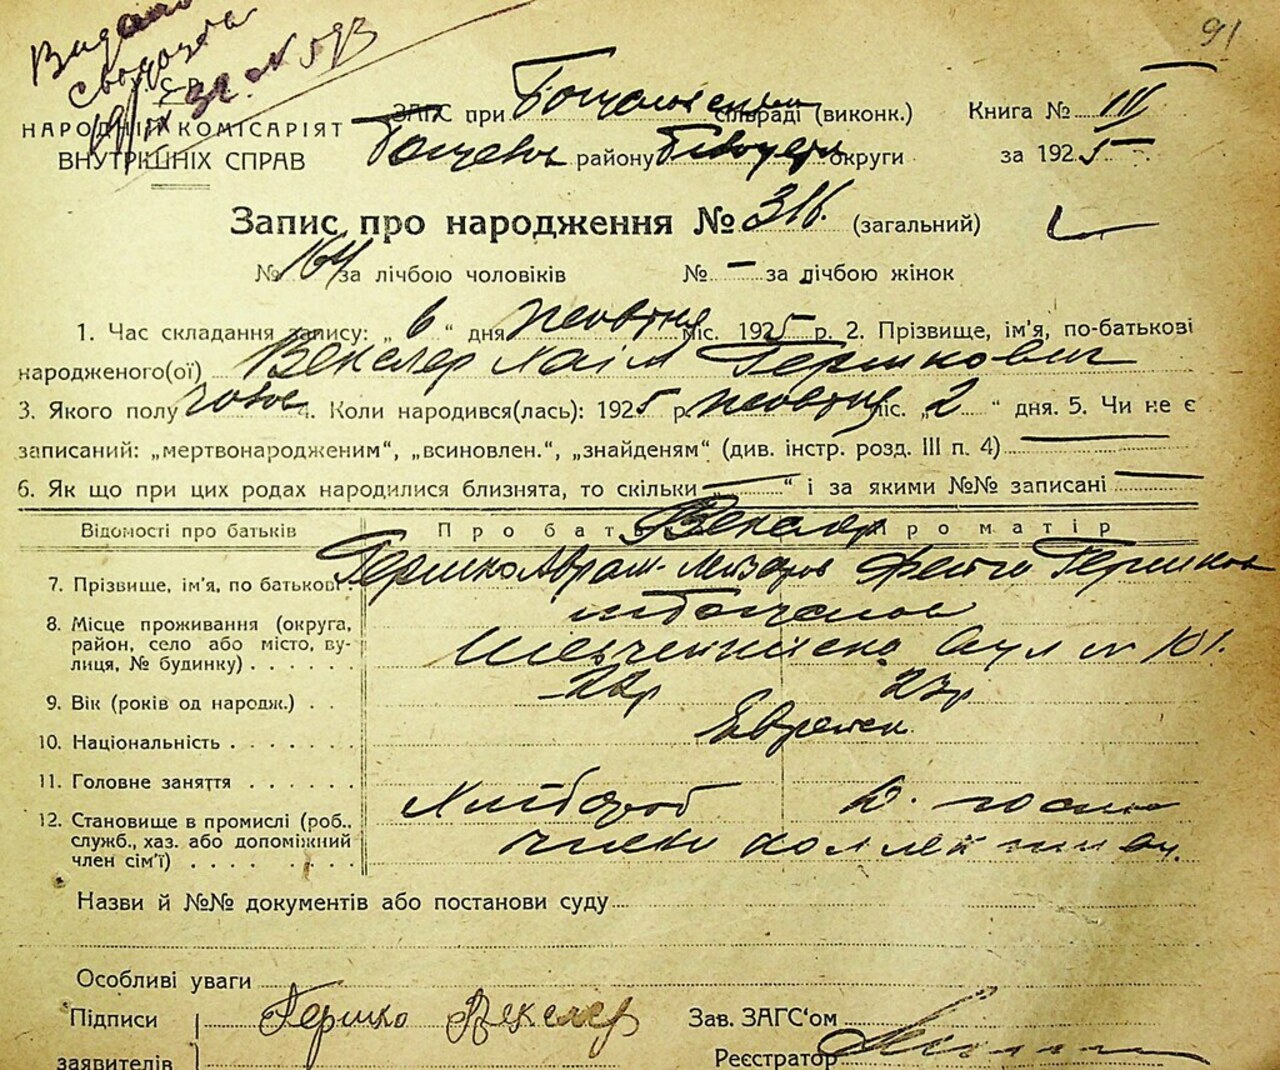 91
Видано
НАРОДНІЙ КОМІСАРІЯТ
ВНУТРІШНІХ СПРАВ
ЗАГС при сільраді (виконк.) Книга № III
району округи за 1925
Запис про народження № 316. (загальний)
№ 164 за лічбою чоловіків № — за лічбою жінок
1. Час складання запису: „ 6 “ дня жовтня міс. 1925 р. 2. Прізвище, ім'я, по-батькові
народженого(ої) Векслер Хаім Гершкович
3. Якого полу чолов 4. Коли народився(лась): 1925 р. жовтня міс. „ 2 “ дня. 5. Чи не є
записаний: „мертвонародженим“, „всиновлен.“, „знайденям“ (див. інстр. розд. III п. 4) —
6. Як що при цих родах народилися близнята, то скільки „ — “ і за якими №№ записані —
Відомості про батьків Про батька Векслер Про матір
7. Прізвище, ім'я, по батькові. Гершко Аврам- Фейга Гершков
8. Місце проживання (округа,
район, село або місто, ву-
лиця, № будинку) вул № 101.
9. Вік (років од народж.) 22р 23р
10. Національність Еврейск.
11. Головне заняття
Хлібороб
12. Становище в промислі (роб.,
служб., хаз. або допоміжний
член сім'ї) члени коллективу.
Назви й №№ документів або постанови суду
Особливі уваги
Підписи Гершко Векслер Зав. ЗАГС‘ом
заявителів Реєстратор